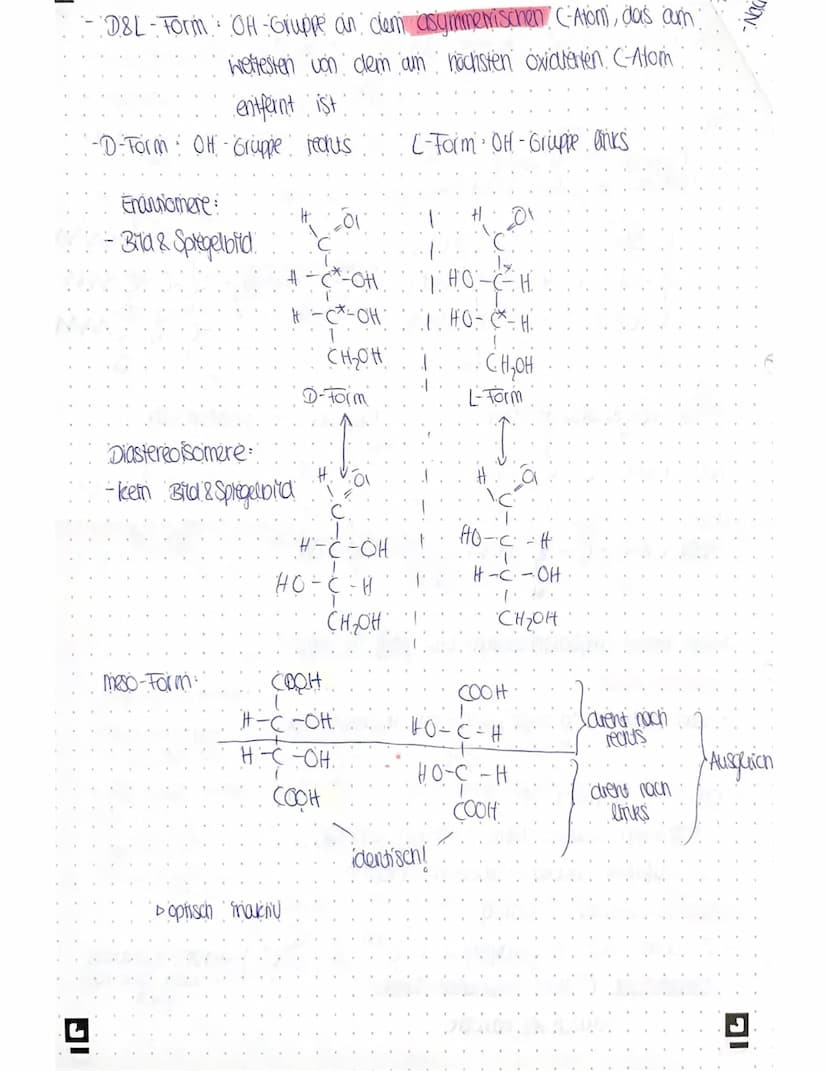 - D&L-Form: OH-Gruppe an dem asymmetrischen C-Atom, das am
weitesten von dem am höchsten oxidierten C-Atom
entfernt ist
-D-Form: OH-Gruppe rechts L-Form: OH-Gruppe links
Enantiomere:
- Bild & Spiegelbild
H O| H O|
C C
H-C*-OH HO-C*-H
H-C*-OH HO-C*-H
CH₂OH CH₂OH
D-Form L-Form
Diastereoisomere:
-kein Bild & Spiegelbild
H O| H O|
C C
H-C-OH HO-C-H
HO-C-H H-C-OH
CH₂OH CH₂OH
meso-Form:
COOH COOH
H-C-OH HO-C-H dreht nach rechts
H-C-OH HO-C-H dreht nach links
COOH COOH
Ausgleich
identisch!
▷ optisch inaktiv